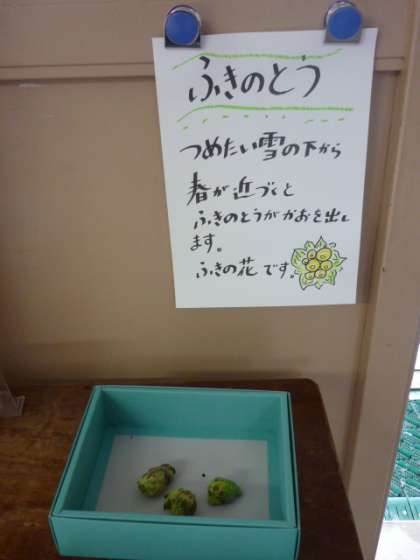 ふきのとう
つめたい雪の下から
春が近づくと
ふきのとうがかおを出し
ます。
ふきの花です。